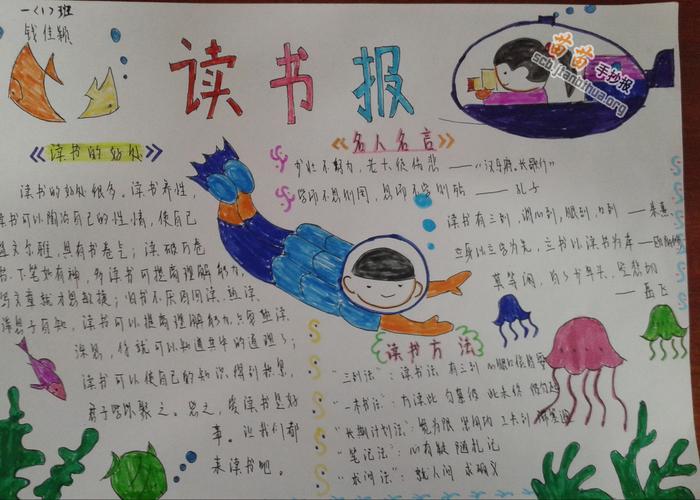 一（1）班
钱佳颖
读书报
苗苗手抄报
scb.jianbihua.org
《读书的好处》
读书的好处很多。读书养性，
读书可以陶冶自己的性情，使自己
温文尔雅，具有书卷气；读破万卷
书，下笔如有神，多读书可提高理解能力，
写文章就才思敏捷；旧书不厌百回读，熟读
深思子自知，读书可以提高理解能力，只要熟读
深思，你就可以知道其中的道理了；
读书可以使自己的知识得到积累，
君子学以聚之。总之，爱读书是好
事。让我们都
来读书吧。
《名人名言》
少壮不努力，老大徒伤悲——“汉乐府。长歌行”
学而不思则罔，思而不学则殆——孔子
读书有三到，谓心到，眼到，口到——朱熹
立身以立学为先，立学以读书为本——欧阳修
莫等闲，白了少年头，空悲切
——岳飞
读书方法
“三到法”：读书法 有三到
“一本书法”：方读此 勿慕彼 此未终 彼勿起
“长期计划法”：宽为限 紧用功 工夫到 滞塞通
“笔记法”：心有疑 随札记
“求问法”：就人问 求确义